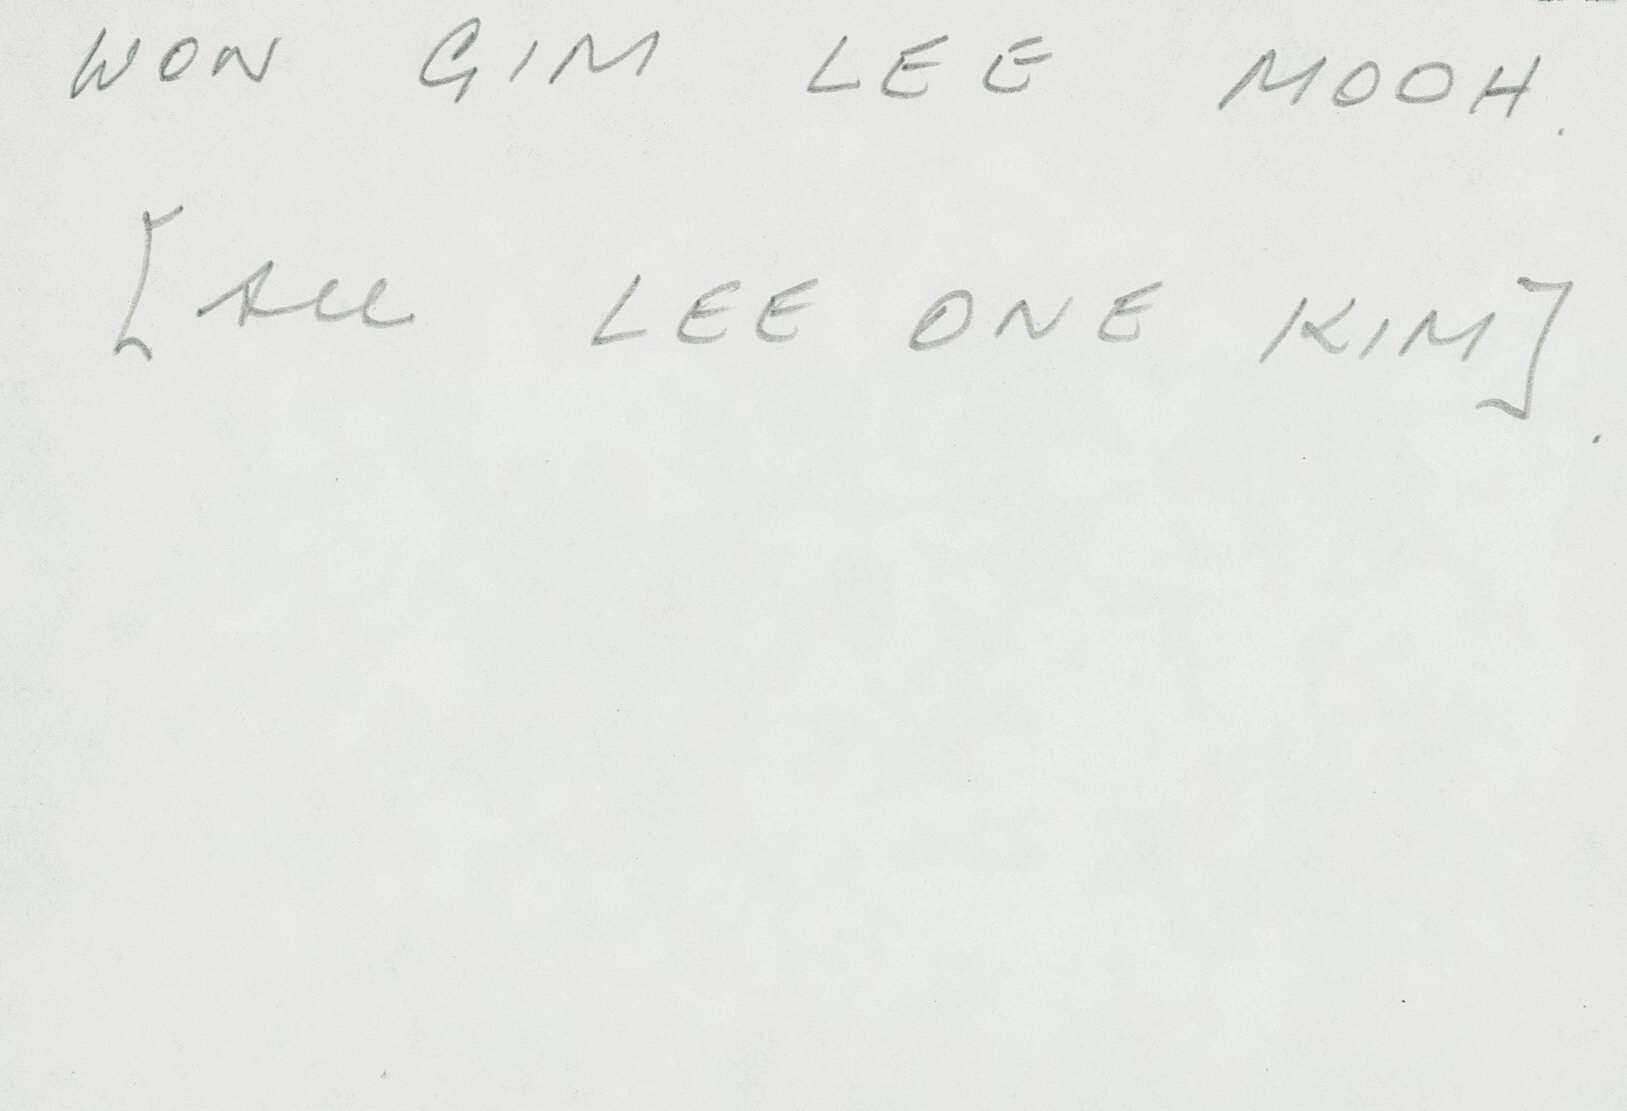 WON GIM LEE MOOH.
[ALL LEE ONE KIM].